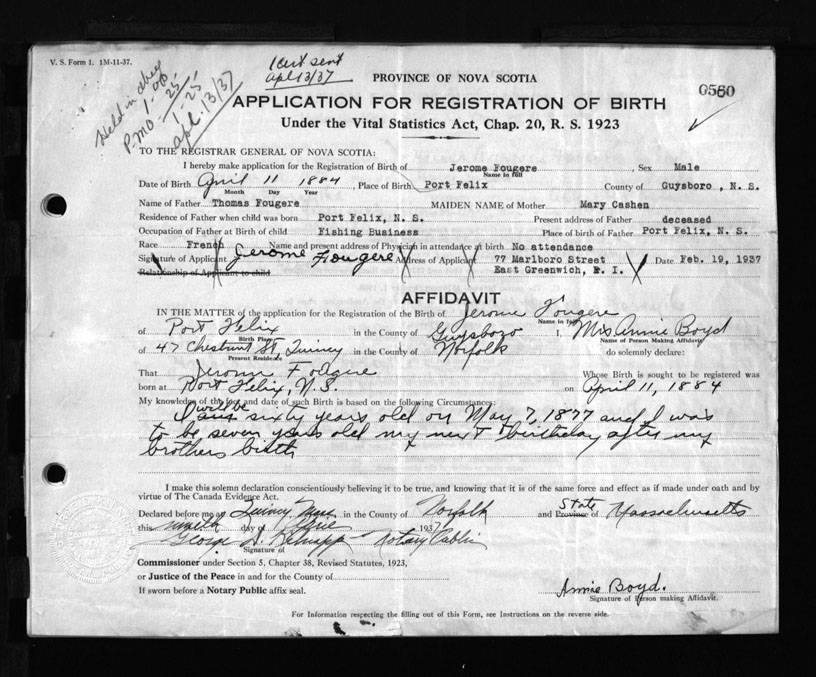 V. S. Form 1. 1M-11-37.
Held in abey
P.M.O. 1.00
25
1.25
apl. 13/37
1 cert sent
apl 13/37
PROVINCE OF NOVA SCOTIA
0560
APPLICATION FOR REGISTRATION OF BIRTH
Under the Vital Statistics Act, Chap. 20, R. S. 1923
TO THE REGISTRAR GENERAL OF NOVA SCOTIA:
I hereby make application for the Registration of Birth of Jerome Fougere, Sex Male
Name in full
Date of Birth April 11 1884, Place of Birth Port Felix County of Guysboro, N. S.
Month Day Year
Name of Father Thomas Fougere MAIDEN NAME of Mother Mary Cashen
Residence of Father when child was born Port Felix, N. S. Present address of Father deceased
Occupation of Father at Birth of Child Fishing Business Place of birth of Father Port Felix, N. S.
Race French Name and present address of Physician in attendance at birth No attendance
Signature of Applicant Jerome Fougere Address of Applicant 77 Marlboro Street Date Feb. 19, 1937
Relationship of Applicant to child East Greenwich, R. I.
AFFIDAVIT
IN THE MATTER of the application for the Registration of the Birth of Jerome Fougere
Name in full
of Port Felix in the County of Guysboro I, Mrs Annie Boyd
Birth Place Name of Person Making Affidavit
of 47 Chestnut St, Quincy in the County of Norfolk do solemnly declare:
Present Residence
That Jerome Fougere Whose Birth is sought to be registered was
born at Port Felix, N. S. on April 11, 1884
My knowledge of the fact and date of such Birth is based on the following Circumstances:
I will be sixty years old on May 7, 1877 and I was
to be seven years old my next birthday after my
brothers birth
I make this solemn declaration conscientiously believing it to be true, and knowing that it is of the same force and effect as if made under oath and by
virtue of The Canada Evidence Act.
Declared before me at Quincy, Mass in the County of Norfolk and State Province of Massachusetts
this day of 1937
George Notary Public
Signature of
Commissioner under Section 5, Chapter 38, Revised Statutes, 1923,
or Justice of the Peace in and for the County of
If sworn before a Notary Public affix seal.
Annie Boyd.
Signature of Person making Affidavit.
For Information respecting the filling out of this Form, see Instructions on the reverse side.